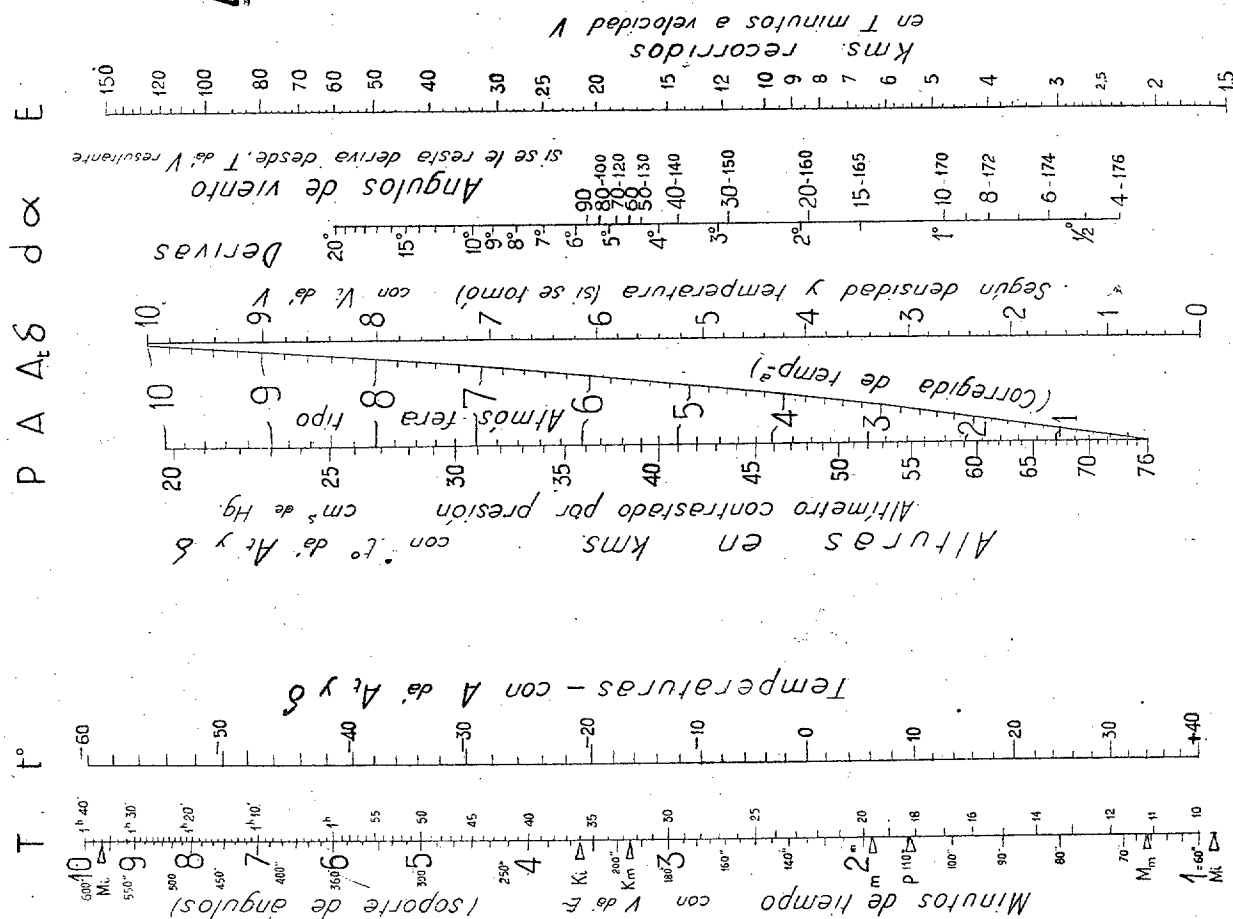 Kms. recorridos
en T minutos a velocidad V
E
150 120 100 80 70 60 50 40 30 25 20 15 12 10 9 8 7 6 5 4 3 2,5 2 1,5
Angulos de viento
si se le resta deriva desde. T dá V resultante
α
90 80-100 70-120 60 50-130 40-140 30-150 20-160 15-165 10-170 8-172 6-174 4-176
d
Derivas
20° 15° 10° 9° 8° 7° 6° 5° 4° 3° 2° 1° ½°
Según densidad y temperatura (si se tomó) con Vi dá V
δ
10 9 8 7 6 5 4 3 2 1 0
At
(Corregida de temp.ª)
10 9 8 7 6 5 4 3 2 1
A
Atmósfera tipo
P
20 25 30 35 40 45 50 55 60 65 70 76
Altímetro contrastado por presión cmˢ de Hg.
Alturas en kms. con t° dá At y δ
Temperaturas - con A dá At y δ
t°
-60 -50 -40 -30 -20 -10 0 10 20 30 +40
T
1ʰ 40' 1ʰ 30' 1ʰ 20' 1ʰ 10' 1ʰ 55 50 45 40 35 30 25 20 18 16 14 12 11 10
10 9 8 7 6 5 4 3 2 1
600" 550" 500 450" 400" 360" 300" 250" 200" 180" 160" 140" m 110" 100" 90 80" 70" =60"
Mi Ki Km m P Mm Mi
Minutos de tiempo con V dá E (soporte de ángulos)